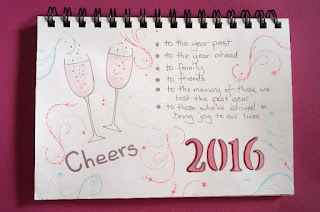 • to the year past
• to the year ahead
• to family
• to friends
• to the memory of those we
lost this past year
• to those who've arrived to
bring joy to our lives
Cheers
2016